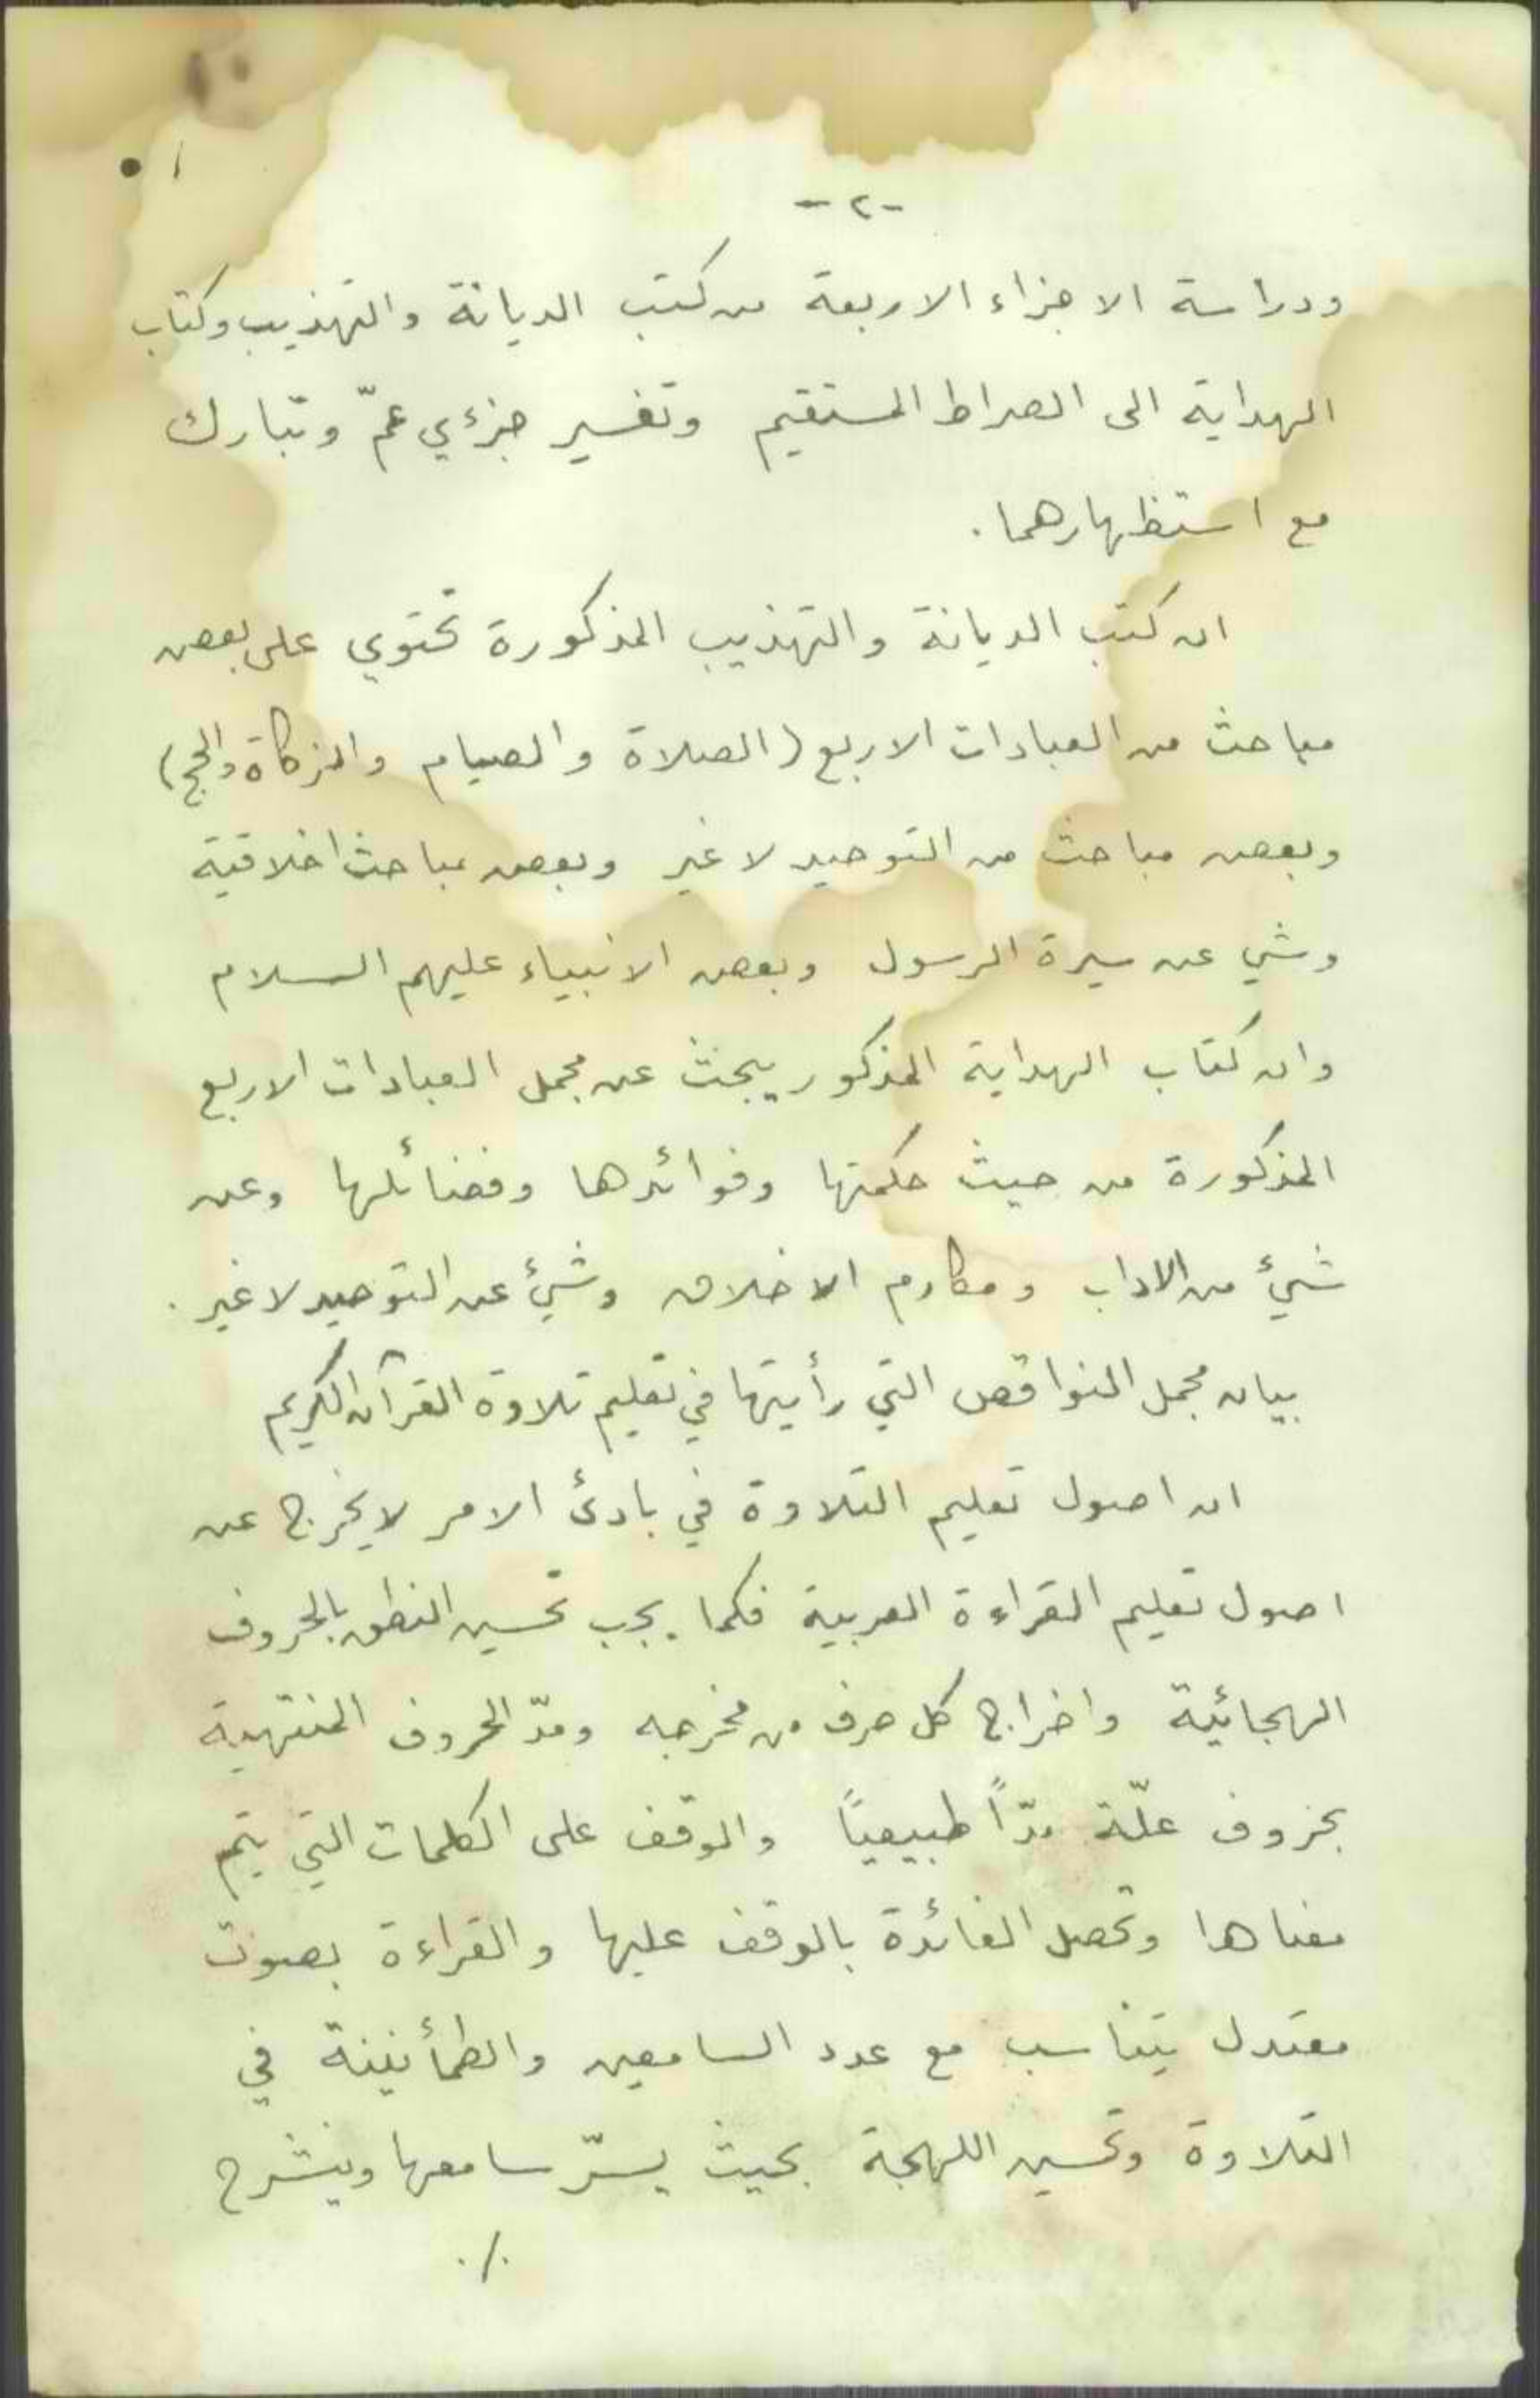 -٢-
ودراسة الاجزاء الاربعة من كتب الديانة والتهذيب وكتاب
الهداية الى الصراط المستقيم وتفسير جزئي عمّ وتبارك
مع استظهارهما.
ان كتب الديانة والتهذيب المذكورة تحتوي على بعض
مباحث من العبادات الاربع (الصلاة والصيام والزكاة والحج)
وبعض مباحث من التوحيد لا غير وبعض مباحث اخلاقية
وشي عن سيرة الرسول وبعض الانبياء عليهم السلام
وان كتاب الهداية المذكور يبحث عن مجمل العبادات الاربع
المذكورة من حيث حكمتها وفوائدها وفضائلها وعن
شيئ من الاداب ومكارم الاخلاق وشيئ عن التوحيد لا غير.
بيان مجمل النواقص التي رأيتها في تعليم تلاوة القرآن الكريم
ان اصول تعليم التلاوة في بادئ الامر لا يخرج عن
اصول تعليم القراءة العربية فكما يجب تحسين النطق بالحروف
الهجائية واخراج كل حرف من مخرجه ومدّ الحروف المنتهية
بحروف علّة مدّاً طبيعياً والوقف على الكلمات التي يتم
معناها وتحصل الفائدة بالوقف عليها والقراءة بصوت
معتدل يتناسب مع عدد السامعين والطمأنينة في
التلاوة وتحسين اللهجة بحيث يسرّ سامعها وينشرح
./.